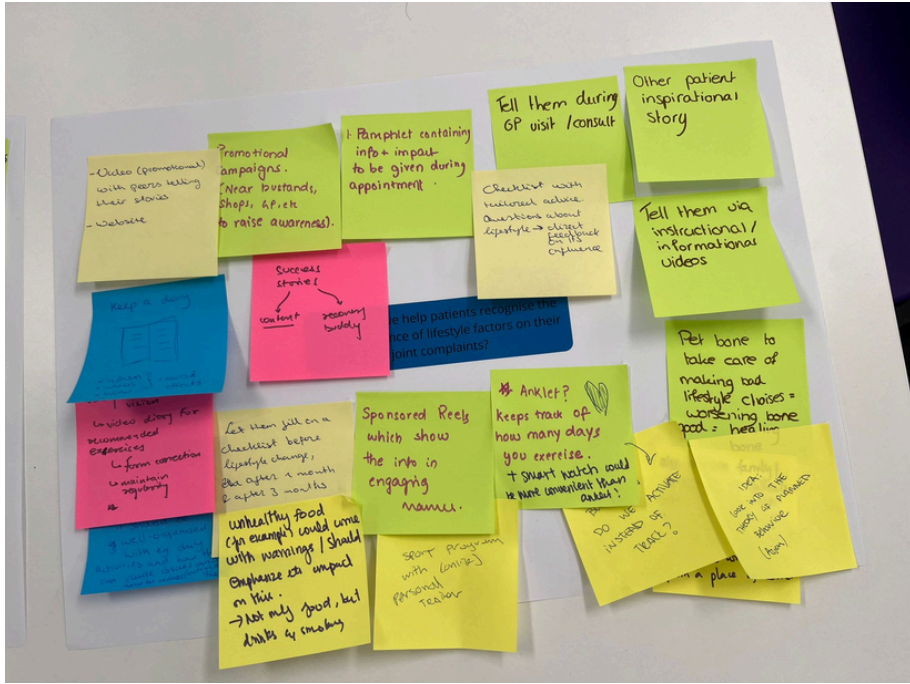 - Video (promotional)
with peers telling
their stories
- Website
Promotional
Campaigns.
(Near bustands,
shops, GP, etc
to raise awareness).
1. Pamphlet containing
info + impact
to be given during
appointment.
Tell them during
GP visit / consult
Other patient
inspirational
story
Checklist with
tailored advice
Questions about
lifestyle → direct
feedback
on its
influence
Tell them via
instructional /
informational
videos
Keep a diary
Success
stories
content
recovery
buddy
help patients recognise the
of lifestyle factors on their
joint complaints?
Pet bone to
take care of
making bad
lifestyle choises =
worsening bone
good = healing
vision
video diary for
recommended
exercices
↳ form correction
↳ maintain
regularity
Let them fill in a
checklist before
lifestyle change,
after 1 month
& after 3 months
Sponsored Reels
which show
the info in
engaging
manner.
Anklet?
keeps track of
how many days
you exercise.
+ smart watch could
be more convenient than
anklet?
well-organised
unhealthy food
(for example) could come
with warnings / should
Emphasize its impact
on this.
→ Not only food, but
drinks & smoking
sport program
with (online)
personal
trainer
DO WE ACTIVATE
INSTEAD OF
TRACK?
IDEA:
LOOK INTO THE
THEORY OF PLANNED
BEHAVIOR
in a place